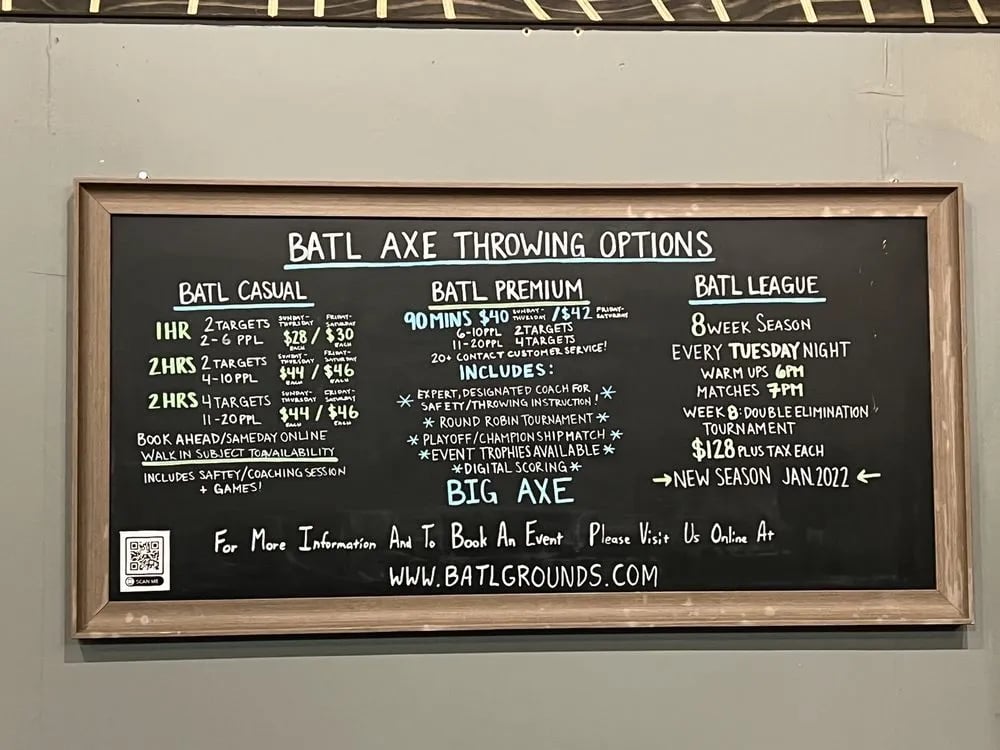 BATL AXE THROWING OPTIONS
BATL CASUAL
1HR 2 TARGETS SUNDAY-THURSDAY FRIDAY-SATURDAY
2-6 PPL $28 EACH / $30 EACH
2HRS 2 TARGETS SUNDAY-THURSDAY FRIDAY-SATURDAY
4-10PPL $44 EACH / $46 EACH
2HRS 4 TARGETS SUNDAY-THURSDAY FRIDAY-SATURDAY
11-20PPL $44 EACH / $46 EACH
BOOK AHEAD/SAMEDAY ONLINE
WALK IN SUBJECT TO AVAILABILITY
INCLUDES SAFTEY/COACHING SESSION
+ GAMES!
BATL PREMIUM
90 MINS $40 SUNDAY-THURSDAY / $42 FRIDAY-SATURDAY
6-10PPL 2TARGETS
11-20PPL 4TARGETS
20+ CONTACT CUSTOMER SERVICE!
INCLUDES:
* EXPERT, DESIGNATED COACH FOR
SAFETY/THROWING INSTRUCTION! *
* ROUND ROBIN TOURNAMENT *
* PLAYOFF/CHAMPIONSHIP MATCH *
*EVENT TROPHIES AVAILABLE *
*DIGITAL SCORING*
BIG AXE
BATL LEAGUE
8 WEEK SEASON
EVERY TUESDAY NIGHT
WARM UPS 6PM
MATCHES 7PM
WEEK 8: DOUBLE ELIMINATION
TOURNAMENT
$128 PLUS TAX EACH
→NEW SEASON JAN.2022←
For More Information And To Book An Event Please Visit Us Online At
WWW.BATLGROUNDS.COM
SCAN ME